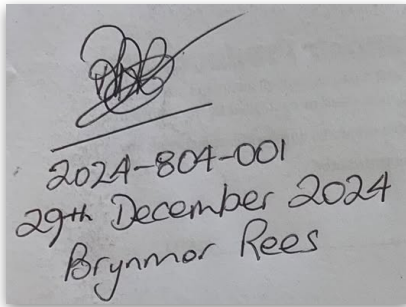 2024-804-001
29th December 2024
Brynmor Rees